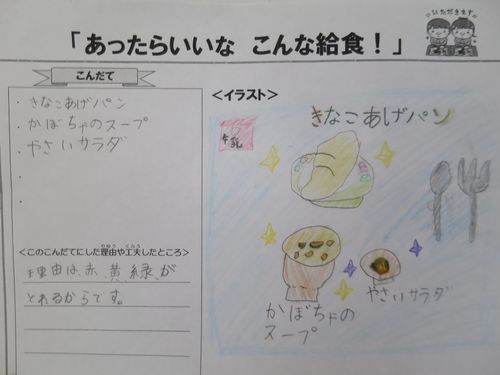 いただきます
「あったらいいな こんな給食！」
こんだて
・きなこあげパン
・かぼちゃのスープ
・やさいサラダ
・
・
＜このこんだてにした理由や工夫したところ＞
りゆう くふう
理由は、赤、黄、緑、が
とれるからです。
＜イラスト＞
牛乳
きなこあげパン
かぼちゃの
スープ
やさいサラダ